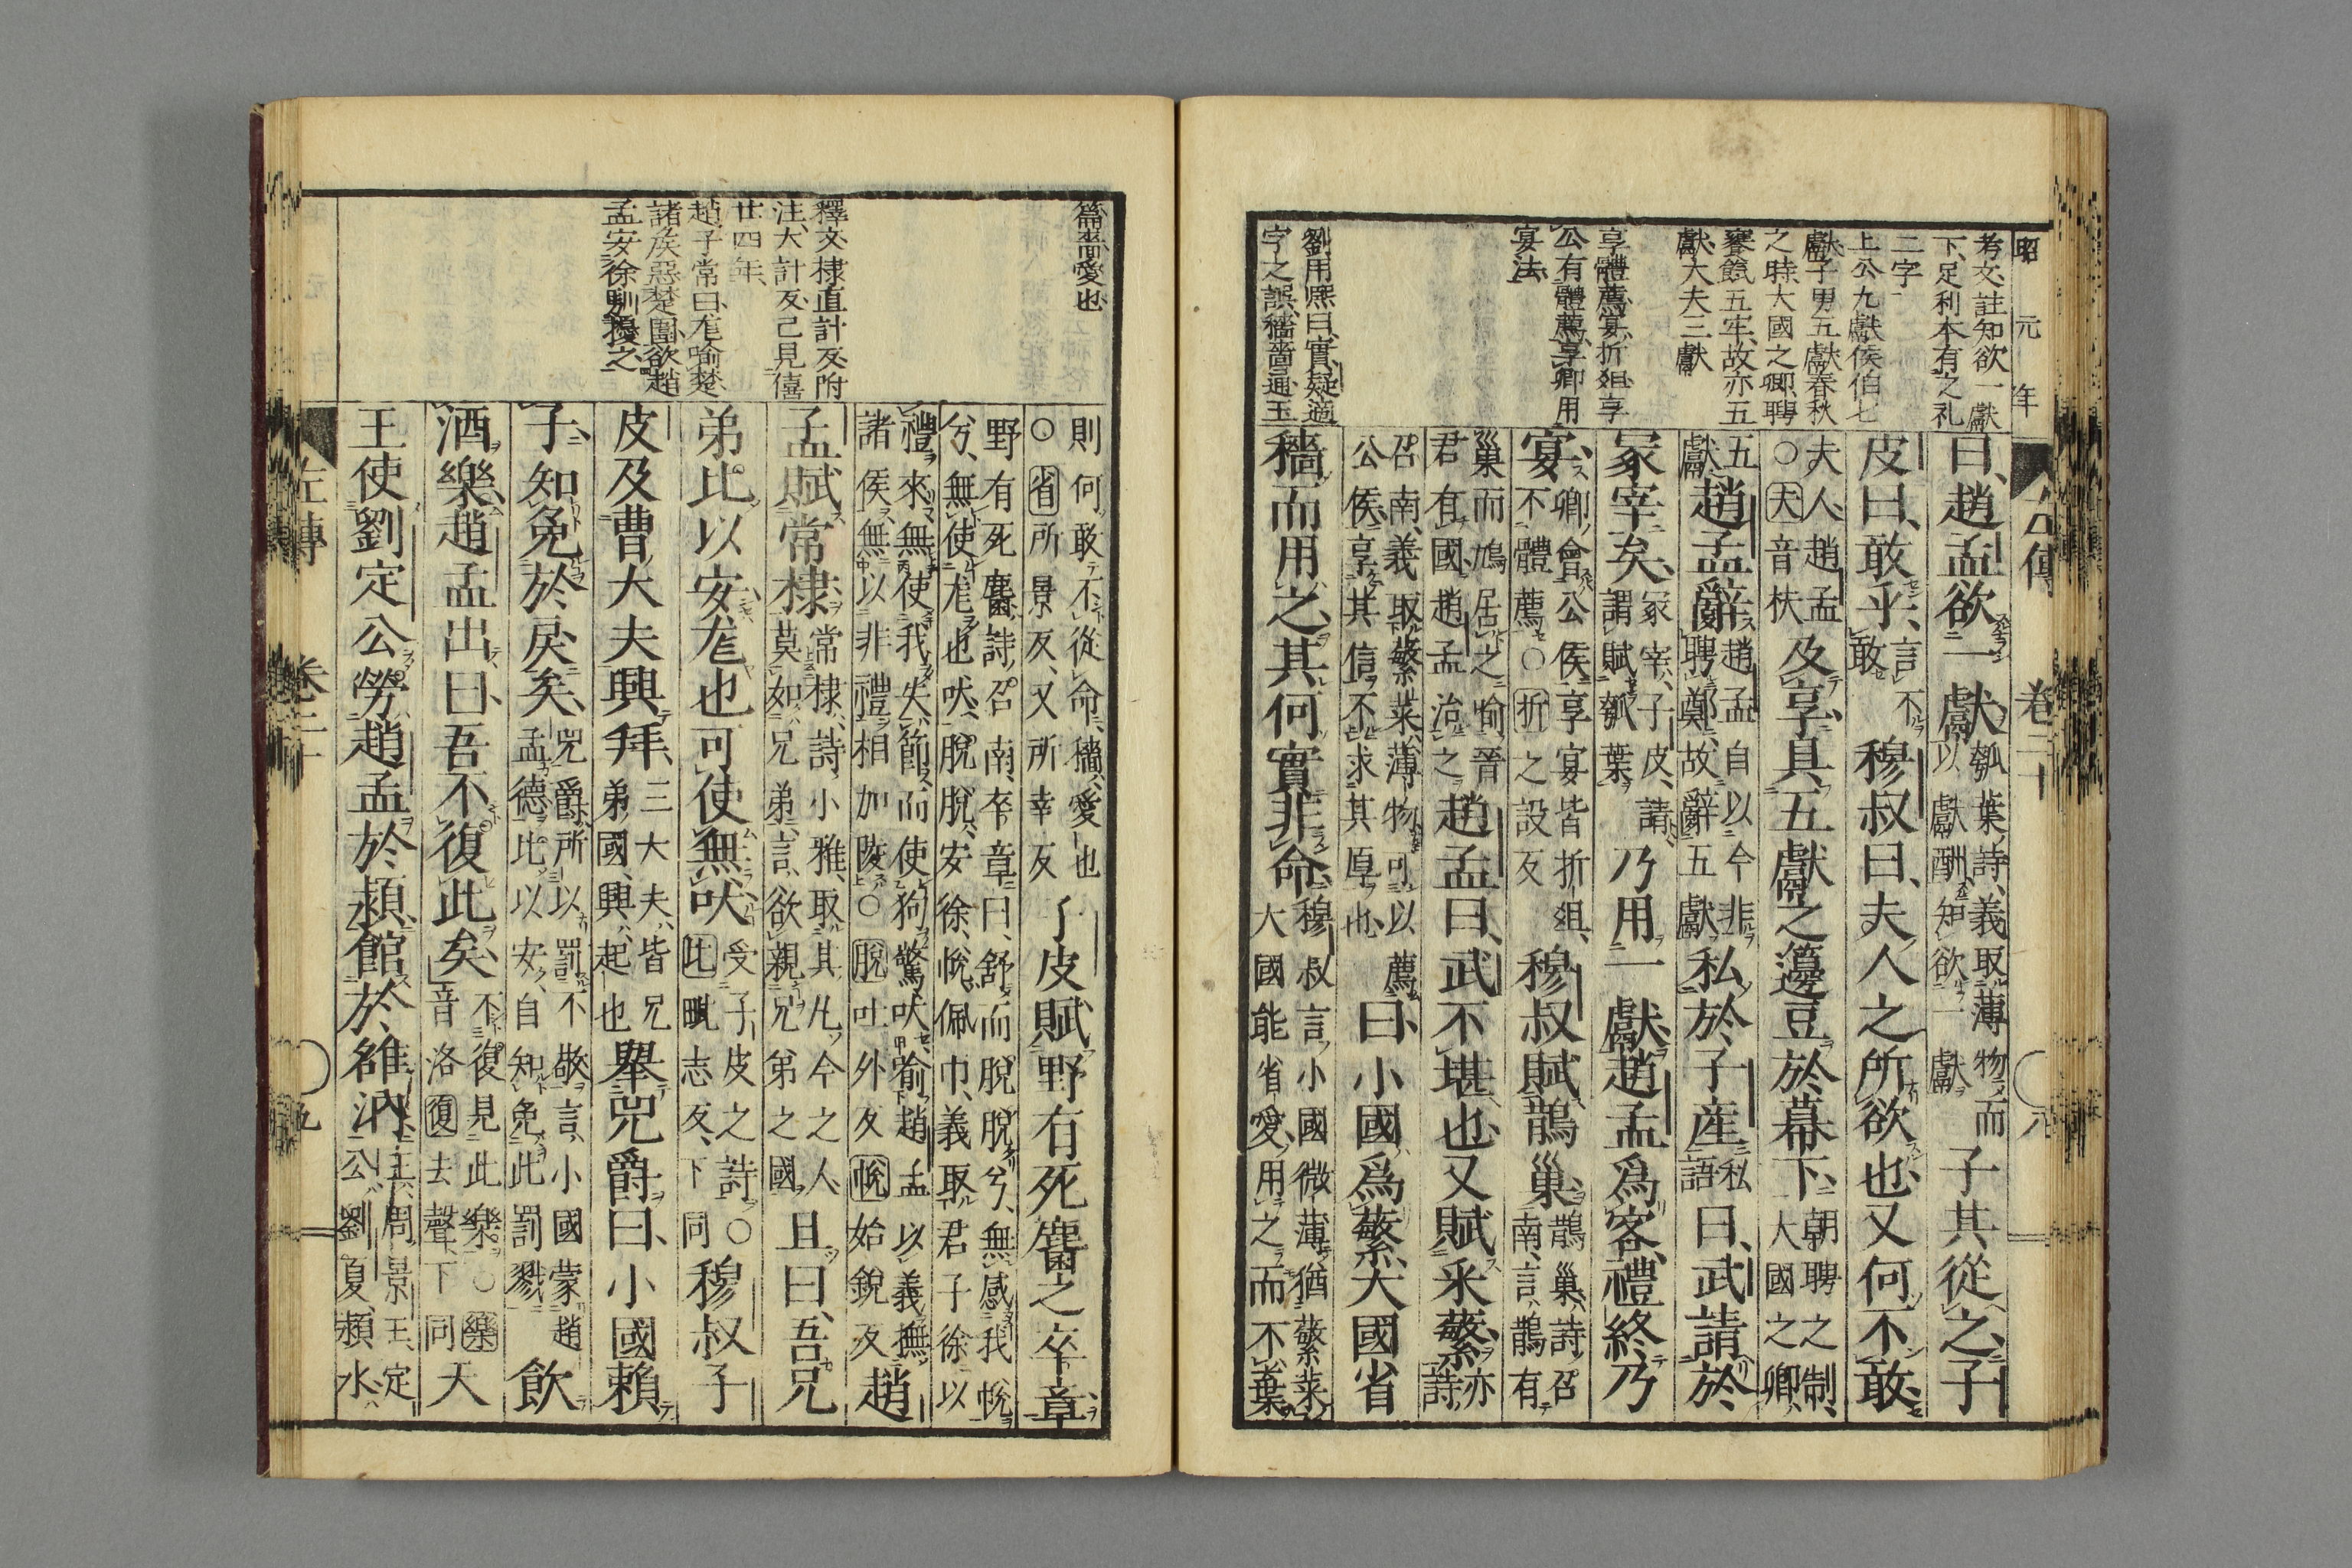 昭元年
左傳 卷二十 ○ 八
考文、註知欲一獻
下、足利本有之礼
二字
上公九獻侯伯七
獻子男五獻春秋
之時大國之卿聘
饔餼五牢、故亦五
獻大夫三獻
享體薦、宴折俎、享
公有體薦、享卿用
宴法、
劉用熙曰、實疑適
字之誤、穡嗇通、玉
曰、趙孟欲一獻 瓠葉詩、義取薄物而
以獻酬、知欲一獻 子其從之、子
皮曰、敢乎、言不
敢 穆叔曰、夫人之所欲也、又何不敢、
夫人、趙孟
○夫音扶 及享、具五獻之籩豆於幕下、朝聘之制、
大國之卿、
五
獻 趙孟辭、趙孟自以今非
聘鄭、故辭五獻 私於子産、私
語 曰、武請於
冢宰矣、冢宰、子皮、請、
謂賦瓠葉 乃用一獻、趙孟爲客、禮終乃
宴、卿會公侯享宴皆折俎、
不體薦○折之設反 穆叔賦鵲巢、鵲巢、詩召
南、言鵲有
巢而鳩居之、喻晉
君有國、趙孟治之 趙孟曰、武不堪也、又賦采蘩、亦
詩
召南、義取蘩菜、薄物可以薦
公侯、享其信不求其厚也、 曰、小國爲蘩、大國省
穡而用之、其何實非命、穆叔言、小國微薄、猶蘩菜
大國能省愛、用之而不棄
篇、嗇愛也、
釋文、棣直計反、附
注、大計反、已見僖
廿四年、
趙子常曰、尨喻楚、
諸侯惡楚圍、欲趙
孟安徐馴擾之
則何敢不從命、穡、愛也
○省所景反、又所幸反 子皮賦野有死麕之卒章、
野有死麕、詩召南、卒章曰、舒而脫脫兮、無感我帨
兮、無使尨也吠、脫脫、安徐、帨、佩巾、義取君子徐以
禮來、無使我失節、而使狗驚吠、喻趙孟以義撫
諸侯、無以非禮相加陵○脫吐外反帨始銳反 趙
孟賦常棣、常棣、詩小雅、取其凡今之人、
莫如兄弟、言欲親兄弟之國 且曰、吾兄
弟比以安、尨也可使無吠、受子皮之詩○
比毗志反、下同 穆叔子
皮及曹大夫興拜、三大夫、皆兄
弟國、興、起也 舉兕爵曰、小國賴
子、知免於戾矣、兕爵所以罰不敬、言小國蒙趙
孟德比以安、自知免此罰戮 飲
酒樂、趙孟出曰、吾不復此矣、不復見此樂○樂
音洛復去聲、下同 天
王使劉定公勞趙孟於潁、館於雒汭、王、周景王、定
公、劉夏、潁水、
左傳 卷二十 ○ 九